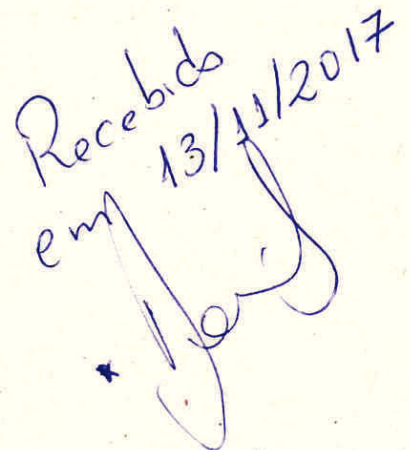 Recebido
em 13/11/2017